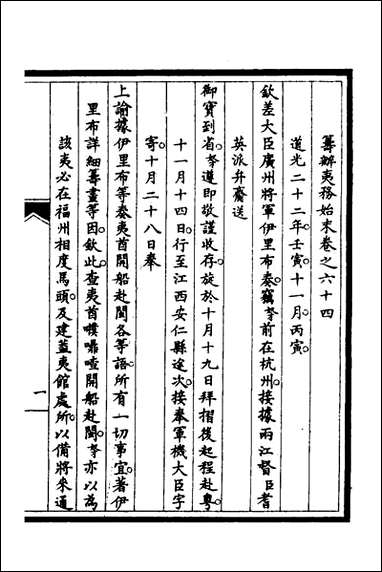 籌辦夷務始末卷之六十四
道光二十二年壬寅十一月丙寅
欽差大臣廣州將軍伊里布奏竊奴才前在杭州接據兩江督臣耆
英派弁齎送
御寶到省奴才遵即敬謹收存旋於十月十九日拜摺後起程赴粵
十一月十四日行至江西安仁縣途次接奉軍機大臣字
寄十月二十八日奉
上諭據伊里布等奏夷酋開船赴閩各等語所有一切事宜著伊
里布詳細籌畫等因欽此查夷酋噗囑喳開船赴閩奴才亦以為
該夷必在福州相度馬頭及建蓋夷館處所以備將來通
一